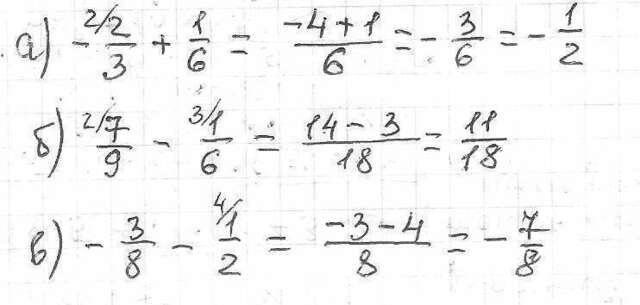 а) - ²/2/3 + 1/6 = (-4+1)/6 = - 3/6 = - 1/2
б) ²/7/9 - ³/1/6 = (14-3)/18 = 11/18
в) - 3/8 - ⁴/1/2 = (-3-4)/8 = - 7/8